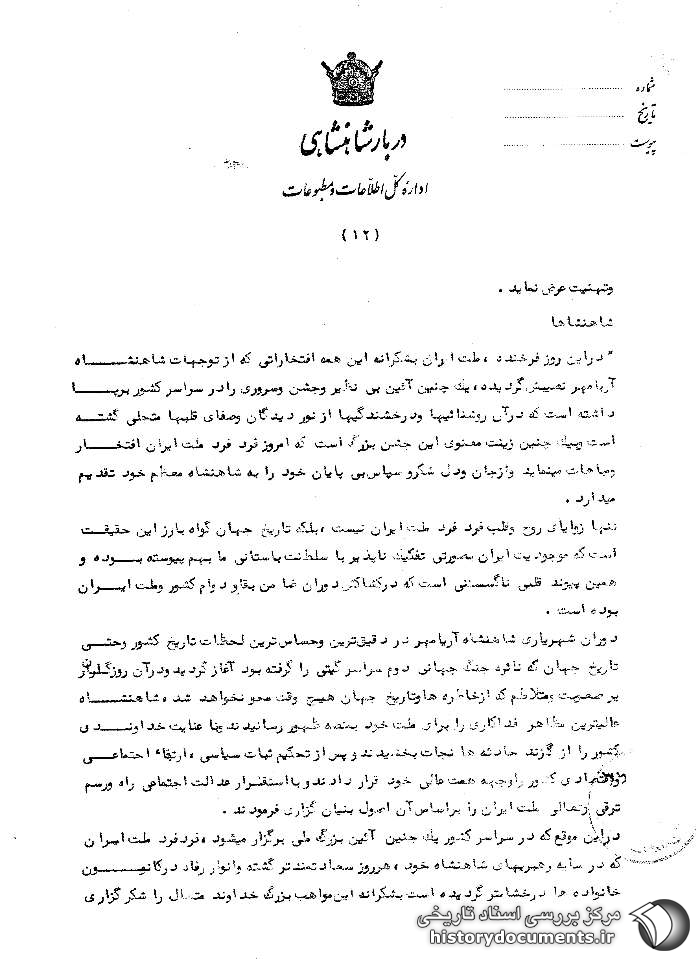 شماره
تاریخ
پیوست
دربار شاهنشاهی
اداره کل اطلاعات و مطبوعات
(۱۲)
وتهنیت عرض نماید .
شاهنشاها
" دراین روز فرخنده ، ملت ایران بشکرانه این همه افتخاراتی که از توجهات شاهنشاه
آریامهر نصیبش گردیده ، یك چنین آئین بی نظیر وجشن وسروری رادر سراسر کشور برپا
داشته است که درآن روشنائیها ودرخشندگیها از نور دیدگان وصفای قلبها متجلی گشته
است وبیك چنین زینت معنوی این جشن بزرگ است که امروز فرد فرد ملت ایران افتخار
ومباهات مینماید وازجان ودل شکرو سپاس بی پایان خود را به شاهنشاه معظم خود تقدیم
میدارد .
تنها زوایای روح وقلب فرد فرد ملت ایران نیست ، بلکه تاریخ جهان گواه بارز این حقیقت
است که موجودیت ایران بصورتی تفکیك ناپذیر با سلطنت باستانی ما بهم پیوسته بوده و
همین پیوند قلبی ناگسستنی است که درکشاکش دوران ضامن بقاو دوام کشور وملت ایران
بوده است .
دوران شهریاری شاهنشاه آریامهر در دقیق‌ترین وحساس‌ترین لحظات تاریخ کشور وحتی
تاریخ جهان که نائره جنگ جهانی دوم سراسر گیتی را گرفته بود آغاز گردید ودرآن روزگار
پر صعوبت ومتلاطم که ازخاطره هاوتاریخ جهان هیچ وقت محو نخواهد شد ، شاهنشاه
عالیترین مظاهر فداکاری را برای ملت خود بمنصه ظهور رسانیدند وبا عنایت خداوندی
کشور را از گزند حادثه ها نجات بخشیدند و پس از تحکیم ثبات سیاسی ، ارتقاء اجتماعی
واقتصادی کشور راوجهه همت عالی خود قرار دادند و با استقرار عدالت اجتماعی راه ورسم
ترقی وتعالی ملت ایران را براساس آن اصول بنیان گزاری فرمودند .
دراین موقع که در سراسر کشور یك چنین آئین بزرگ ملی برگزار میشود ، فردفرد ملت ایران
که در سایه رهبریهای شاهنشاه خود ، هرروز سعادتمندتر گشته وانوار رفاه درکانون
خانواده ها درخشانتر گردیده است بشکرانه این مواهب بزرگ خداوند متعال را شکرگزاری
مرکز بررسی اسناد تاریخی
historydocuments.ir